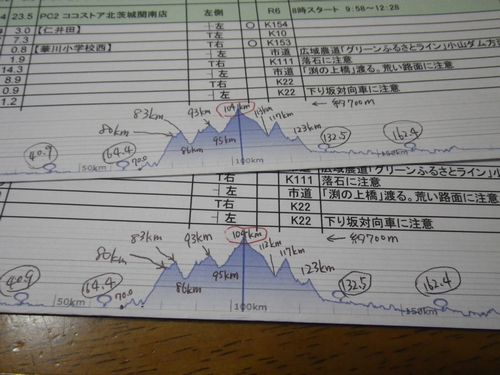 23.5 PC2 ココストア北茨城関南店 左側 R6 8時スタート 9:58~12:28
3.0 【仁井田】 ┤左 ○ K154
7.3 T右 K10
0.8 【華川小学校西】 T右 ○ K153
1.9 ┤左 市道 広域農道「グリーンふるさとライン」小山ダム方
14.3 T右 K111 落石に注意
8.9 ┤左 市道 「渕の上橋」渡る。荒い路面に注意
0.9 T右 K22
1.2 ┤左 K22 下り坂対向車に注意
104km ← 約700m
83km 93km 113km 117km
80km 95km 123km
40.9 64.4 70.0 86km 132.5 162.4
50km 100km
T右 K111 落石に注意
┤左 市道 「渕の上橋」渡る。荒い路面に注意
T右 K22
┤左 K22 下り坂対向車に注意
104km ← 約700m
83km 93km 113km 117km
80km 95km 123km
40.9 64.4 70.0 86km 132.5 162.4
50km 100km 150km